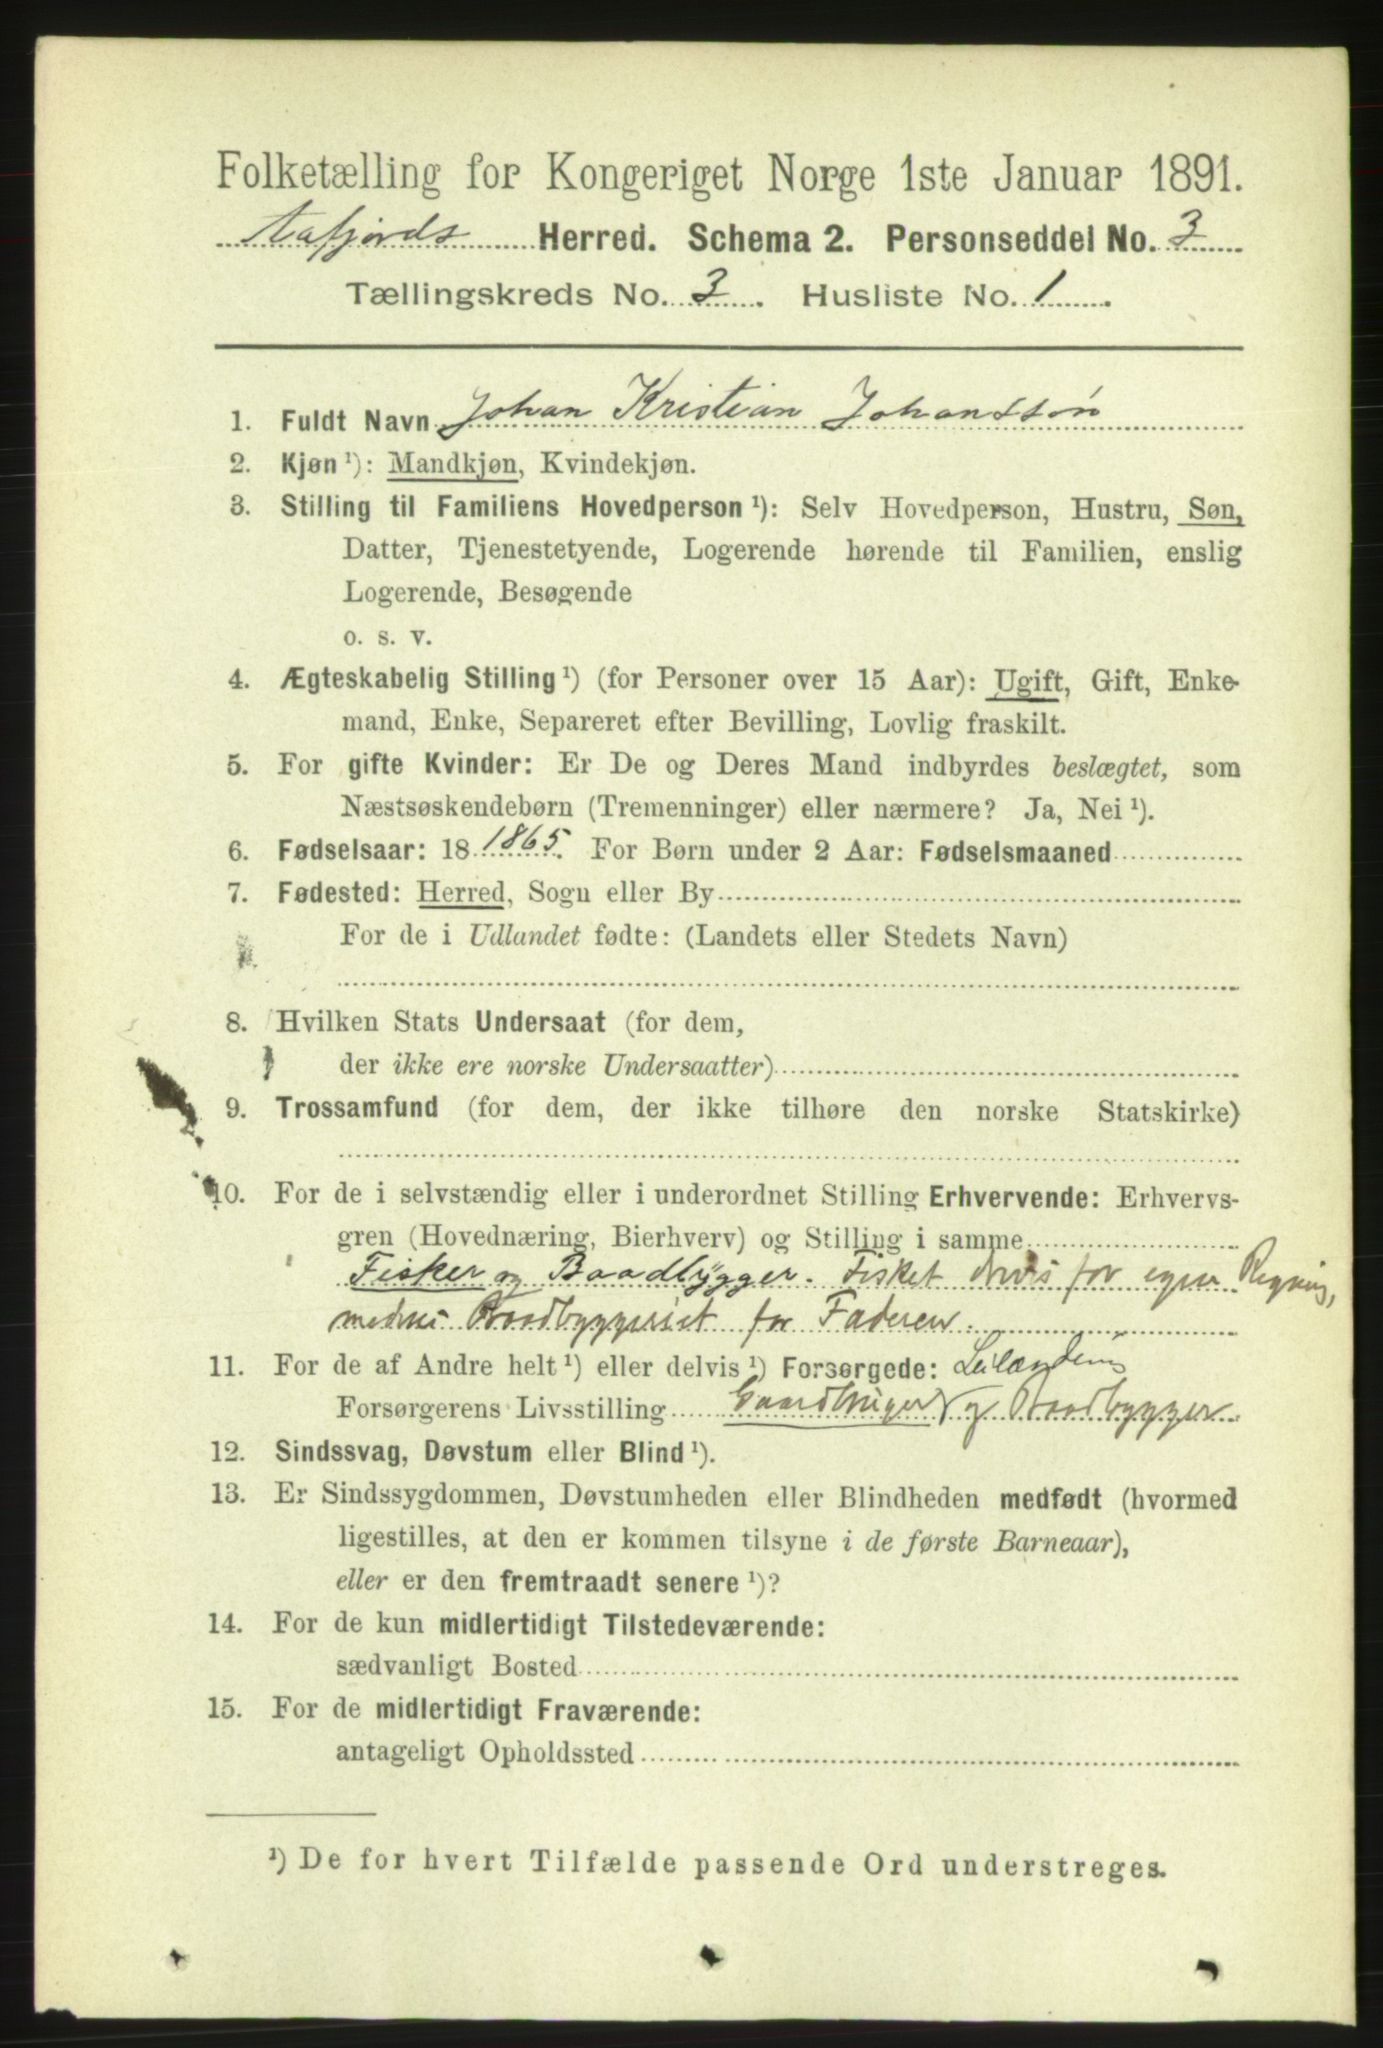 Folketælling for Kongeriget Norge 1ste Januar 1891.
Aafjords Herred. Schema 2. Personseddel No. 3
Tællingskreds No. 3. Husliste No. 1.
1. Fuldt Navn Johan Kristian Johanssøn
2. Kjøn ¹): Mandkjøn, Kvindekjøn.
3. Stilling til Familiens Hovedperson ¹): Selv Hovedperson, Hustru, Søn,
Datter, Tjenestetyende, Logerende hørende til Familien, enslig
Logerende, Besøgende
o. s. v.
4. Ægteskabelig Stilling ¹) (for Personer over 15 Aar): Ugift, Gift, Enke-
mand, Enke, Separeret efter Bevilling, Lovlig fraskilt.
5. For gifte Kvinder: Er De og Deres Mand indbyrdes beslægtet, som
Næstsøskendebørn (Tremenninger) eller nærmere? Ja, Nei ¹).
6. Fødselsaar: 18 1865. For Børn under 2 Aar: Fødselsmaaned
7. Fødested: Herred, Sogn eller By
For de i Udlandet fødte: (Landets eller Stedets Navn)
8. Hvilken Stats Undersaat (for dem,
der ikke ere norske Undersaatter)
9. Trossamfund (for dem, der ikke tilhøre den norske Statskirke)
10. For de i selvstændig eller i underordnet Stilling Erhvervende: Erhvervs-
gren (Hovednæring, Bierhverv) og Stilling i samme
Fisker og Baadbygger. Fisket drives for egen Regning,
medens Baadbyggeriet for Faderen.
11. For de af Andre helt ¹) eller delvis ¹) Forsørgede: Leilændings
Forsørgerens Livsstilling Gaardbruger og Baadbygger.
12. Sindssvag, Døvstum eller Blind ¹).
13. Er Sindssygdommen, Døvstumheden eller Blindheden medfødt (hvormed
ligestilles, at den er kommen tilsyne i de første Barneaar),
eller er den fremtraadt senere ¹)?
14. For de kun midlertidigt Tilstedeværende:
sædvanligt Bosted
15. For de midlertidigt Fraværende:
antageligt Opholdssted
¹) De for hvert Tilfælde passende Ord understreges.